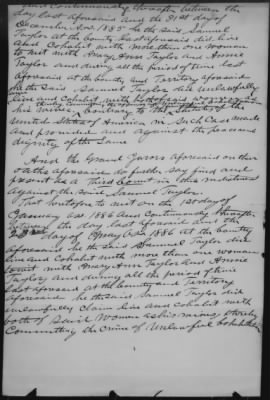 and Continuously thereafter between the
day last aforesaid and the 31st day of
December A.D. 1885 he the said Samuel
Taylor at the County last aforesaid did live
and Cohabit with more than one woman
to wit with Mary Ann Taylor and Annie
Taylor and during all the period of time last
aforesaid at the County and Territory aforesaid
he the said Samuel Taylor did unlawfully
live and Cohabit with both of said
as his wives Contrary to the Statutes of the
United States of America in Such Case made
and provided and against the peace and
dignity of the Same
And the Grand Jurors aforesaid on their
oaths aforesaid do further say find and
present as a Third Count in this indictment
against the said Samuel Taylor.
That heretofore to wit on the 1st day of
January A.D. 1886 And Continuously thereafter
between the day last aforesaid and the
day of May A.D. 1886 at the County
aforesaid he the said Samuel Taylor did
live and Cohabit with more than one woman
to wit with Mary Ann Taylor and Annie
Taylor and during all the period of time
last aforesaid at the County and Territory
aforesaid he the said Samuel Taylor did
unlawfully claim live and cohabit with
both of said women as his wives thereby
Committing the crime of Unlawful Cohabitation